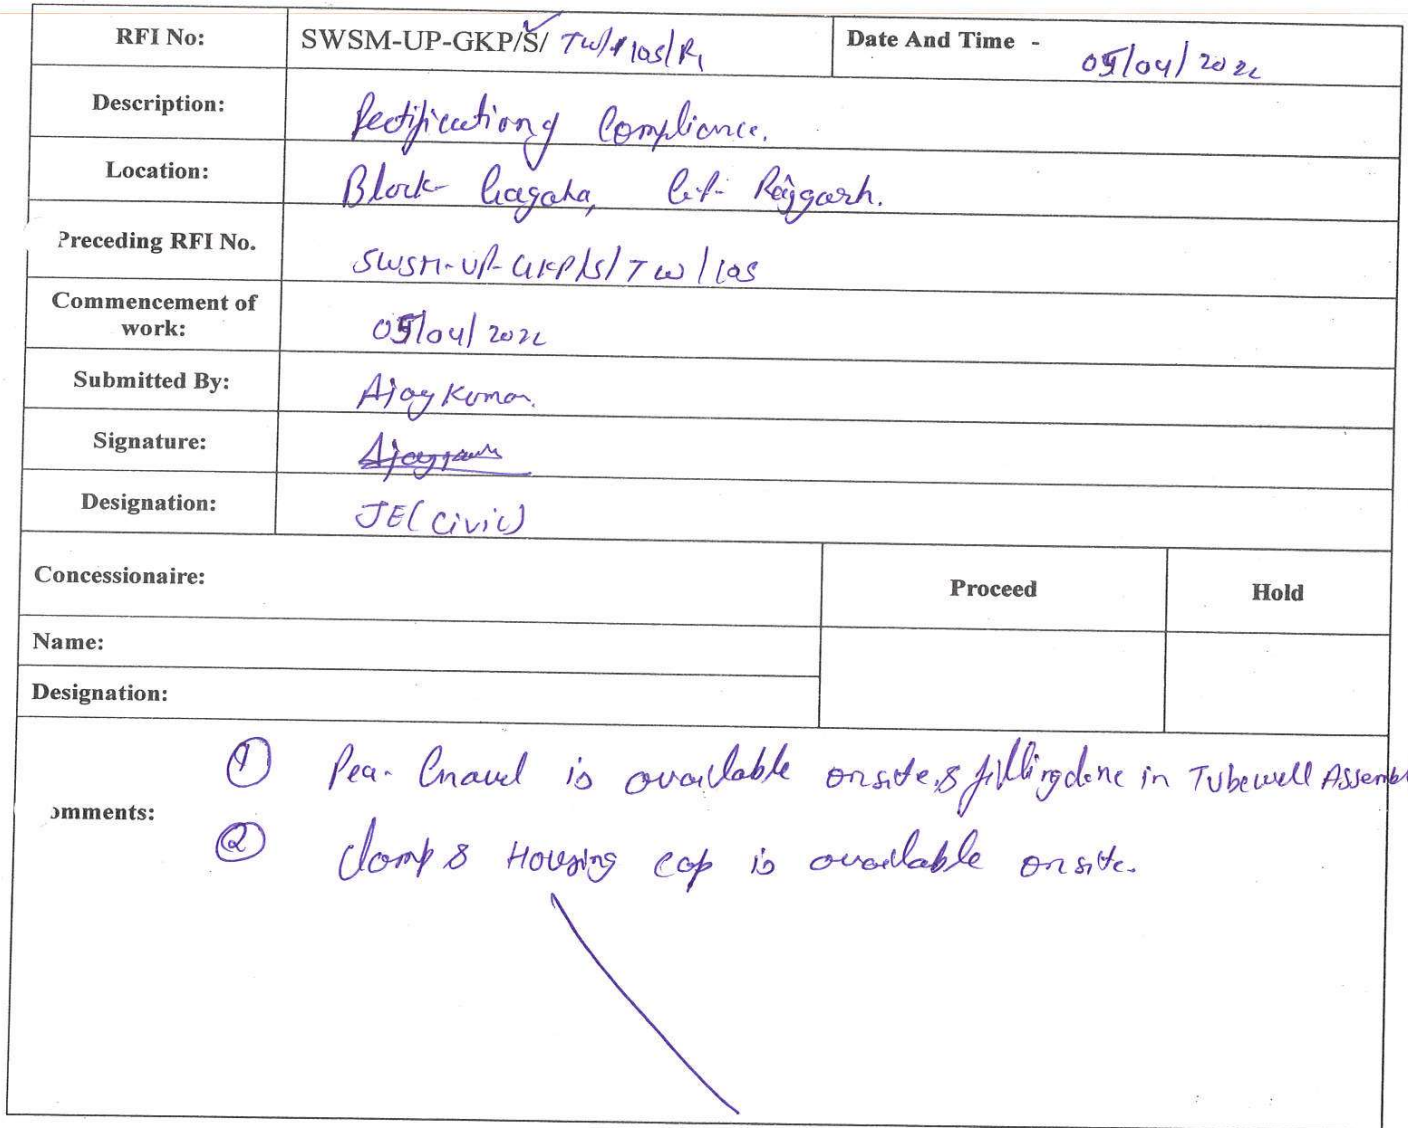 RFI No: SWSM-UP-GKP/S/ TW/105/R1 Date And Time - 05/04/2022
Description: Rectification of Compliance.
Location: Block- Gagaha, G.P- Rajgarh.
Preceding RFI No. SWSM-UP-GKP/S/TW/105
Commencement of
work: 05/04/2022
Submitted By: Ajay Kumar.
Signature:
Designation: JE(Civil)
Concessionaire: Proceed Hold
Name:
Designation:
① Pea- Gravel is available onsite & filling done in Tubewell Assembl
omments:
② Clamp & Housing cap is available onsite.